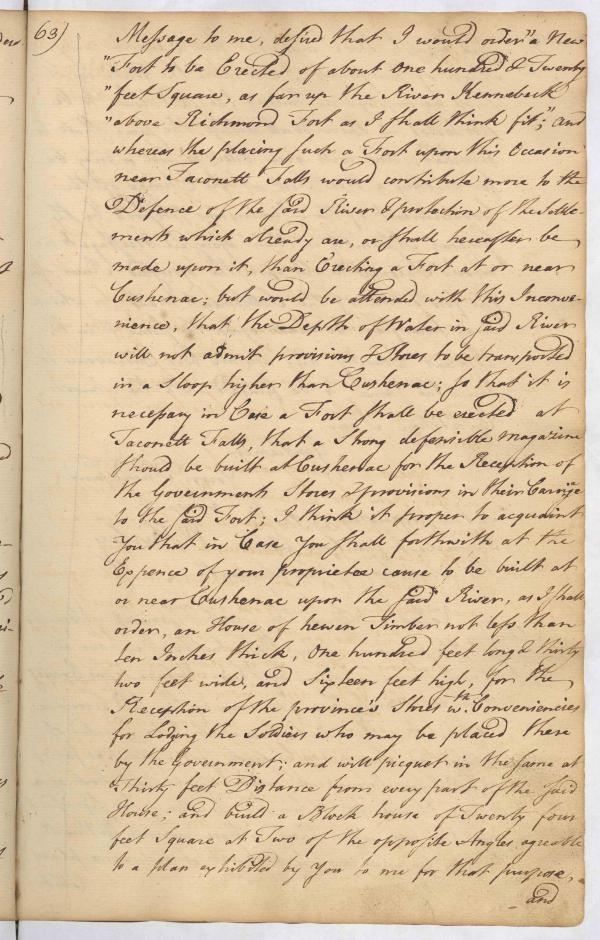 63)
Message to me, desired that I would order "a New
"Fort to be Erected of about One hundred & Twenty
"feet Square, as far up the River Kennebeck
"above Richmond Fort as I shall think fit"; and
whereas the placing such a Fort upon this Occasion
near Taconett Falls would contribute more to the
Defence of the said River & protection of the Settle-
ments which already are, or shall hereafter be
made upon it, than Erecting a Fort at or near
Cushenac; but would be attended with this Inconve-
nience, that the Depth of Water in said River
will not admit provisions & Stores to be transported
in a Sloop higher than Cushenac; so that it is
necessary in Case a Fort shall be erected at
Taconett Falls, that a Strong defensible magazine
should be built at Cushenac for the Reception of
the Governments Stores & provisions in their Carriage
to the said Fort; I think it proper to acquaint
You that in Case You shall forthwith at the
Expence of your proprietee cause to be built at
or near Cushenac upon the said River, as I shall
order, an House of hewen Timber not less than
ten Inches thick, One hundred feet long & thirty
two feet wide, and Sixteen feet high, for the
Reception of the province's Stores wth. Conveniencies
for Lodging the Soldiers who may be placed there
by the Government; and will picquet in the same at
Thirty feet Distance from every part of the said
House; and build a Block house of Twenty four
feet Square at Two of the opposite Angles agreable
to a plan exhibited by You to me for that purpose,
and